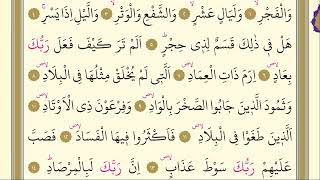 وَالْفَجْرِ ۝١ وَلَيَالٍ عَشْرٍ ۝٢ وَالشَّفْعِ وَالْوَتْرِ ۝٣ وَالَّيْلِ إِذَا يَسْرِ ۝٤
هَلْ فِي ذَٰلِكَ قَسَمٌ لِذِي حِجْرٍ ۝٥ أَلَمْ تَرَ كَيْفَ فَعَلَ رَبُّكَ
بِعَادٍ ۝٦ إِرَمَ ذَاتِ الْعِمَادِ ۝٧ الَّتِي لَمْ يُخْلَقْ مِثْلُهَا فِي الْبِلَادِ ۝٨
وَثَمُودَ الَّذِينَ جَابُوا الصَّخْرَ بِالْوَادِ ۝٩ وَفِرْعَوْنَ ذِي الْأَوْتَادِ ۝١٠
الَّذِينَ طَغَوْا فِي الْبِلَادِ ۝١١ فَأَكْثَرُوا فِيهَا الْفَسَادَ ۝١٢ فَصَبَّ
عَلَيْهِمْ رَبُّكَ سَوْطَ عَذَابٍ ۝١٣ إِنَّ رَبَّكَ لَبِالْمِرْصَادِ ۝١٤